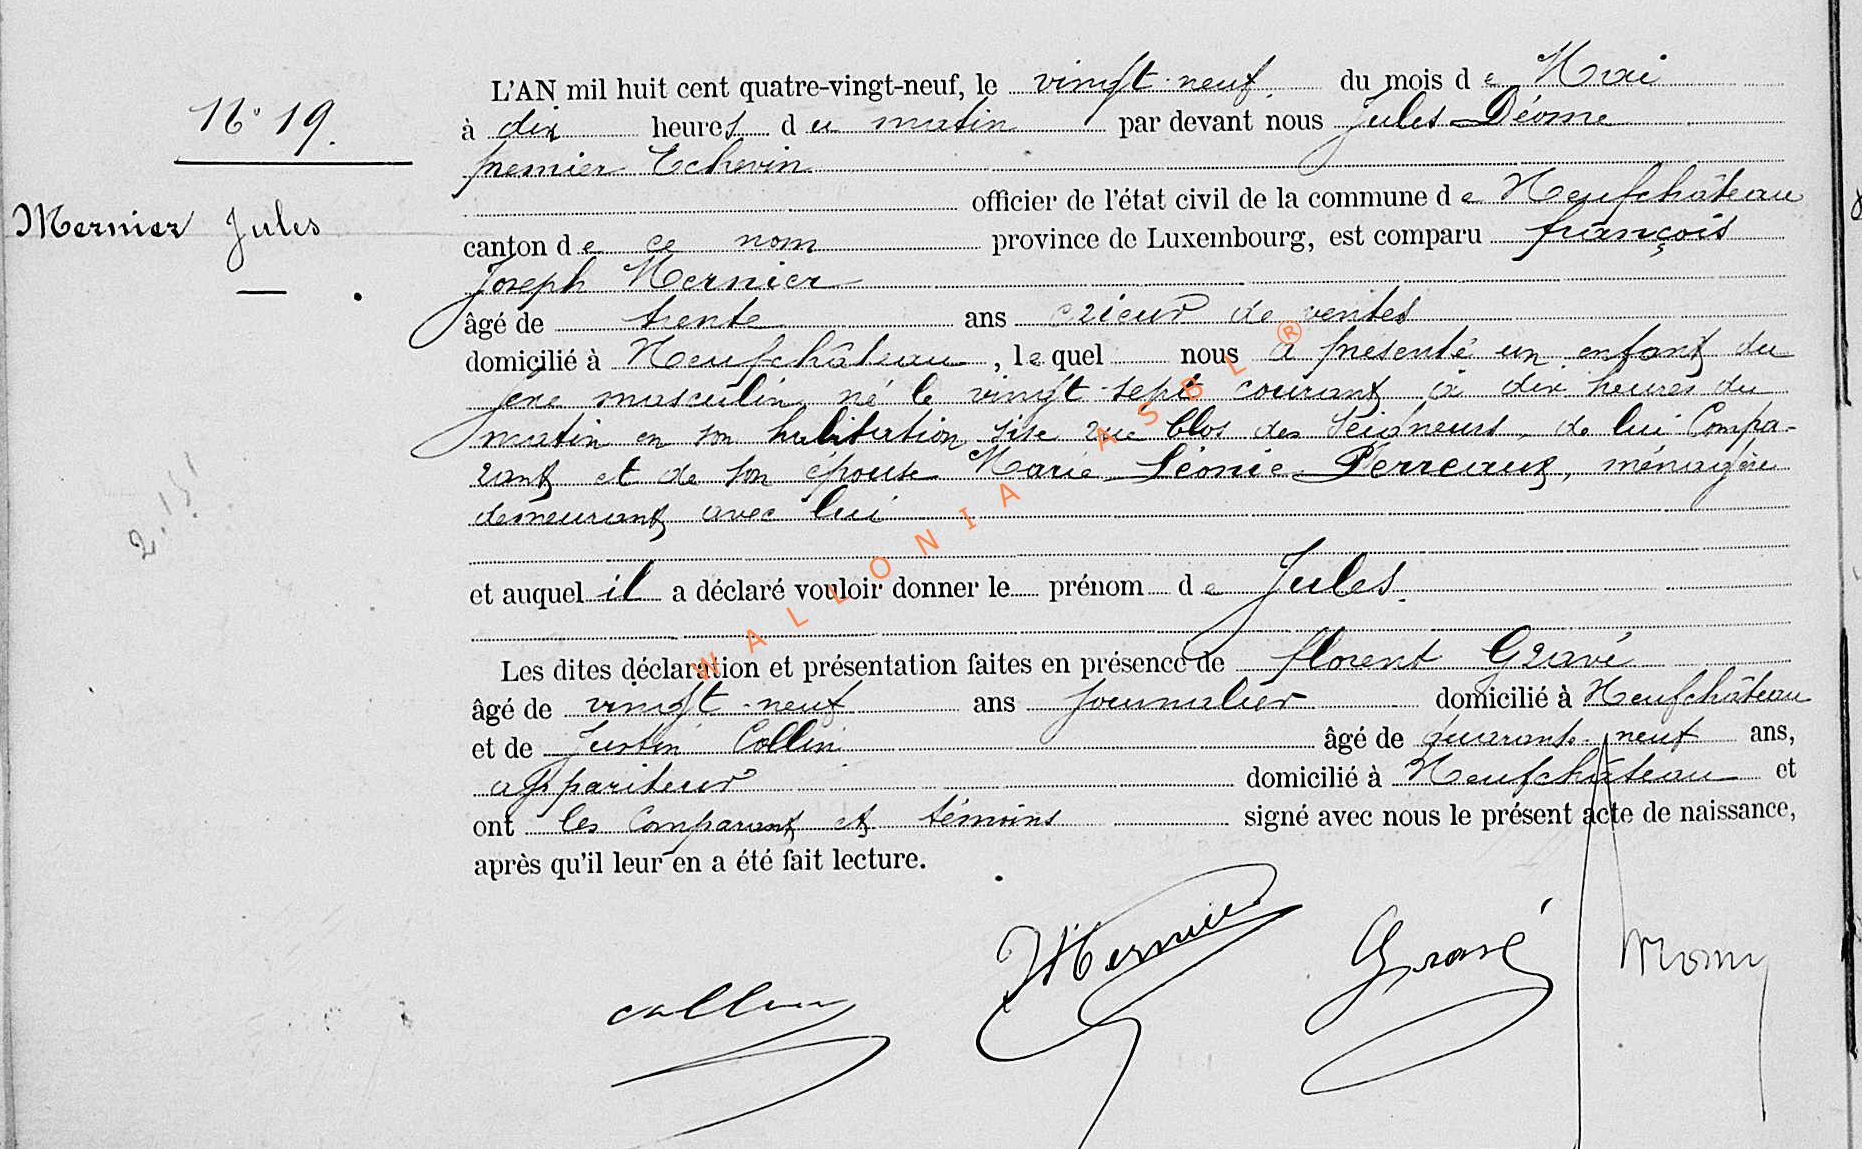 N° 19.
Mernier Jules
L'AN mil huit cent quatre-vingt-neuf, le vingt-neuf du mois de Mai
à dix heures du matin par devant nous Jules Déome
premier Echevin
officier de l'état civil de la commune de Neufchâteau
canton de ce nom province de Luxembourg, est comparu françois
Joseph Mernier
âgé de trente ans crieur de ventes
domicilié à Neufchâteau, lequel nous a presenté un enfant du
sexe masculin, né le vingt-sept courant à dix heures du
matin en son habitation, sise rue Clos des Seigneurs, de lui Compa-
rant et de son épouse Marie Léonie Perreaux, ménagère
demeurant avec lui
et auquel il a déclaré vouloir donner le prénom de Jules.
Les dites déclaration et présentation faites en présence de florent Gravé
âgé de vingt-neuf ans journalier domicilié à Neufchâteau
et de Justin Collin âgé de quarante-neuf ans,
appariteur domicilié à Neufchâteau et
ont les Comparant et témoins signé avec nous le présent acte de naissance,
après qu'il leur en a été fait lecture.
Collin Mernier Gravé
WALLONIA ASBL ®